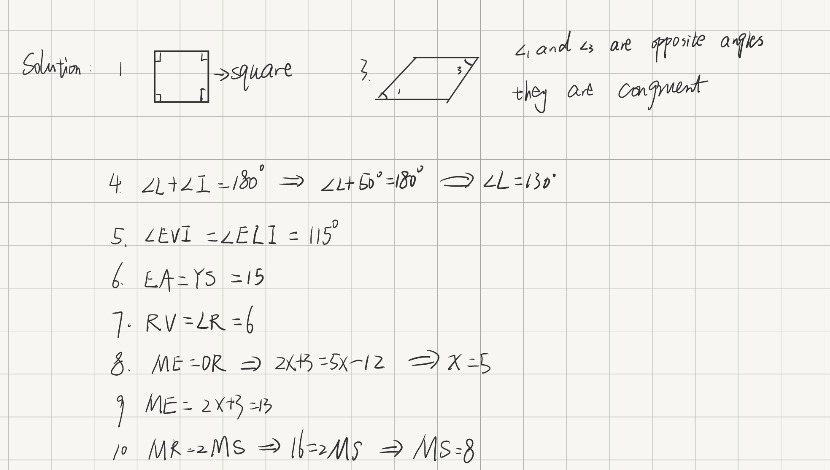 Solution: 1 →square
3. 3 1
∠1 and ∠3 are opposite angles
they are congruent
4. ∠L+∠I=180° ⇒ ∠L+50°=180° ⇒ ∠L=130°
5. ∠EVI=∠ELI=115°
6. EA=YS=15
7. RV=LR=6
8. ME=OR ⇒ 2x+3=5x-12 ⇒ x=5
9 ME=2x+3=13
10 MR=2MS ⇒ 16=2MS ⇒ MS=8